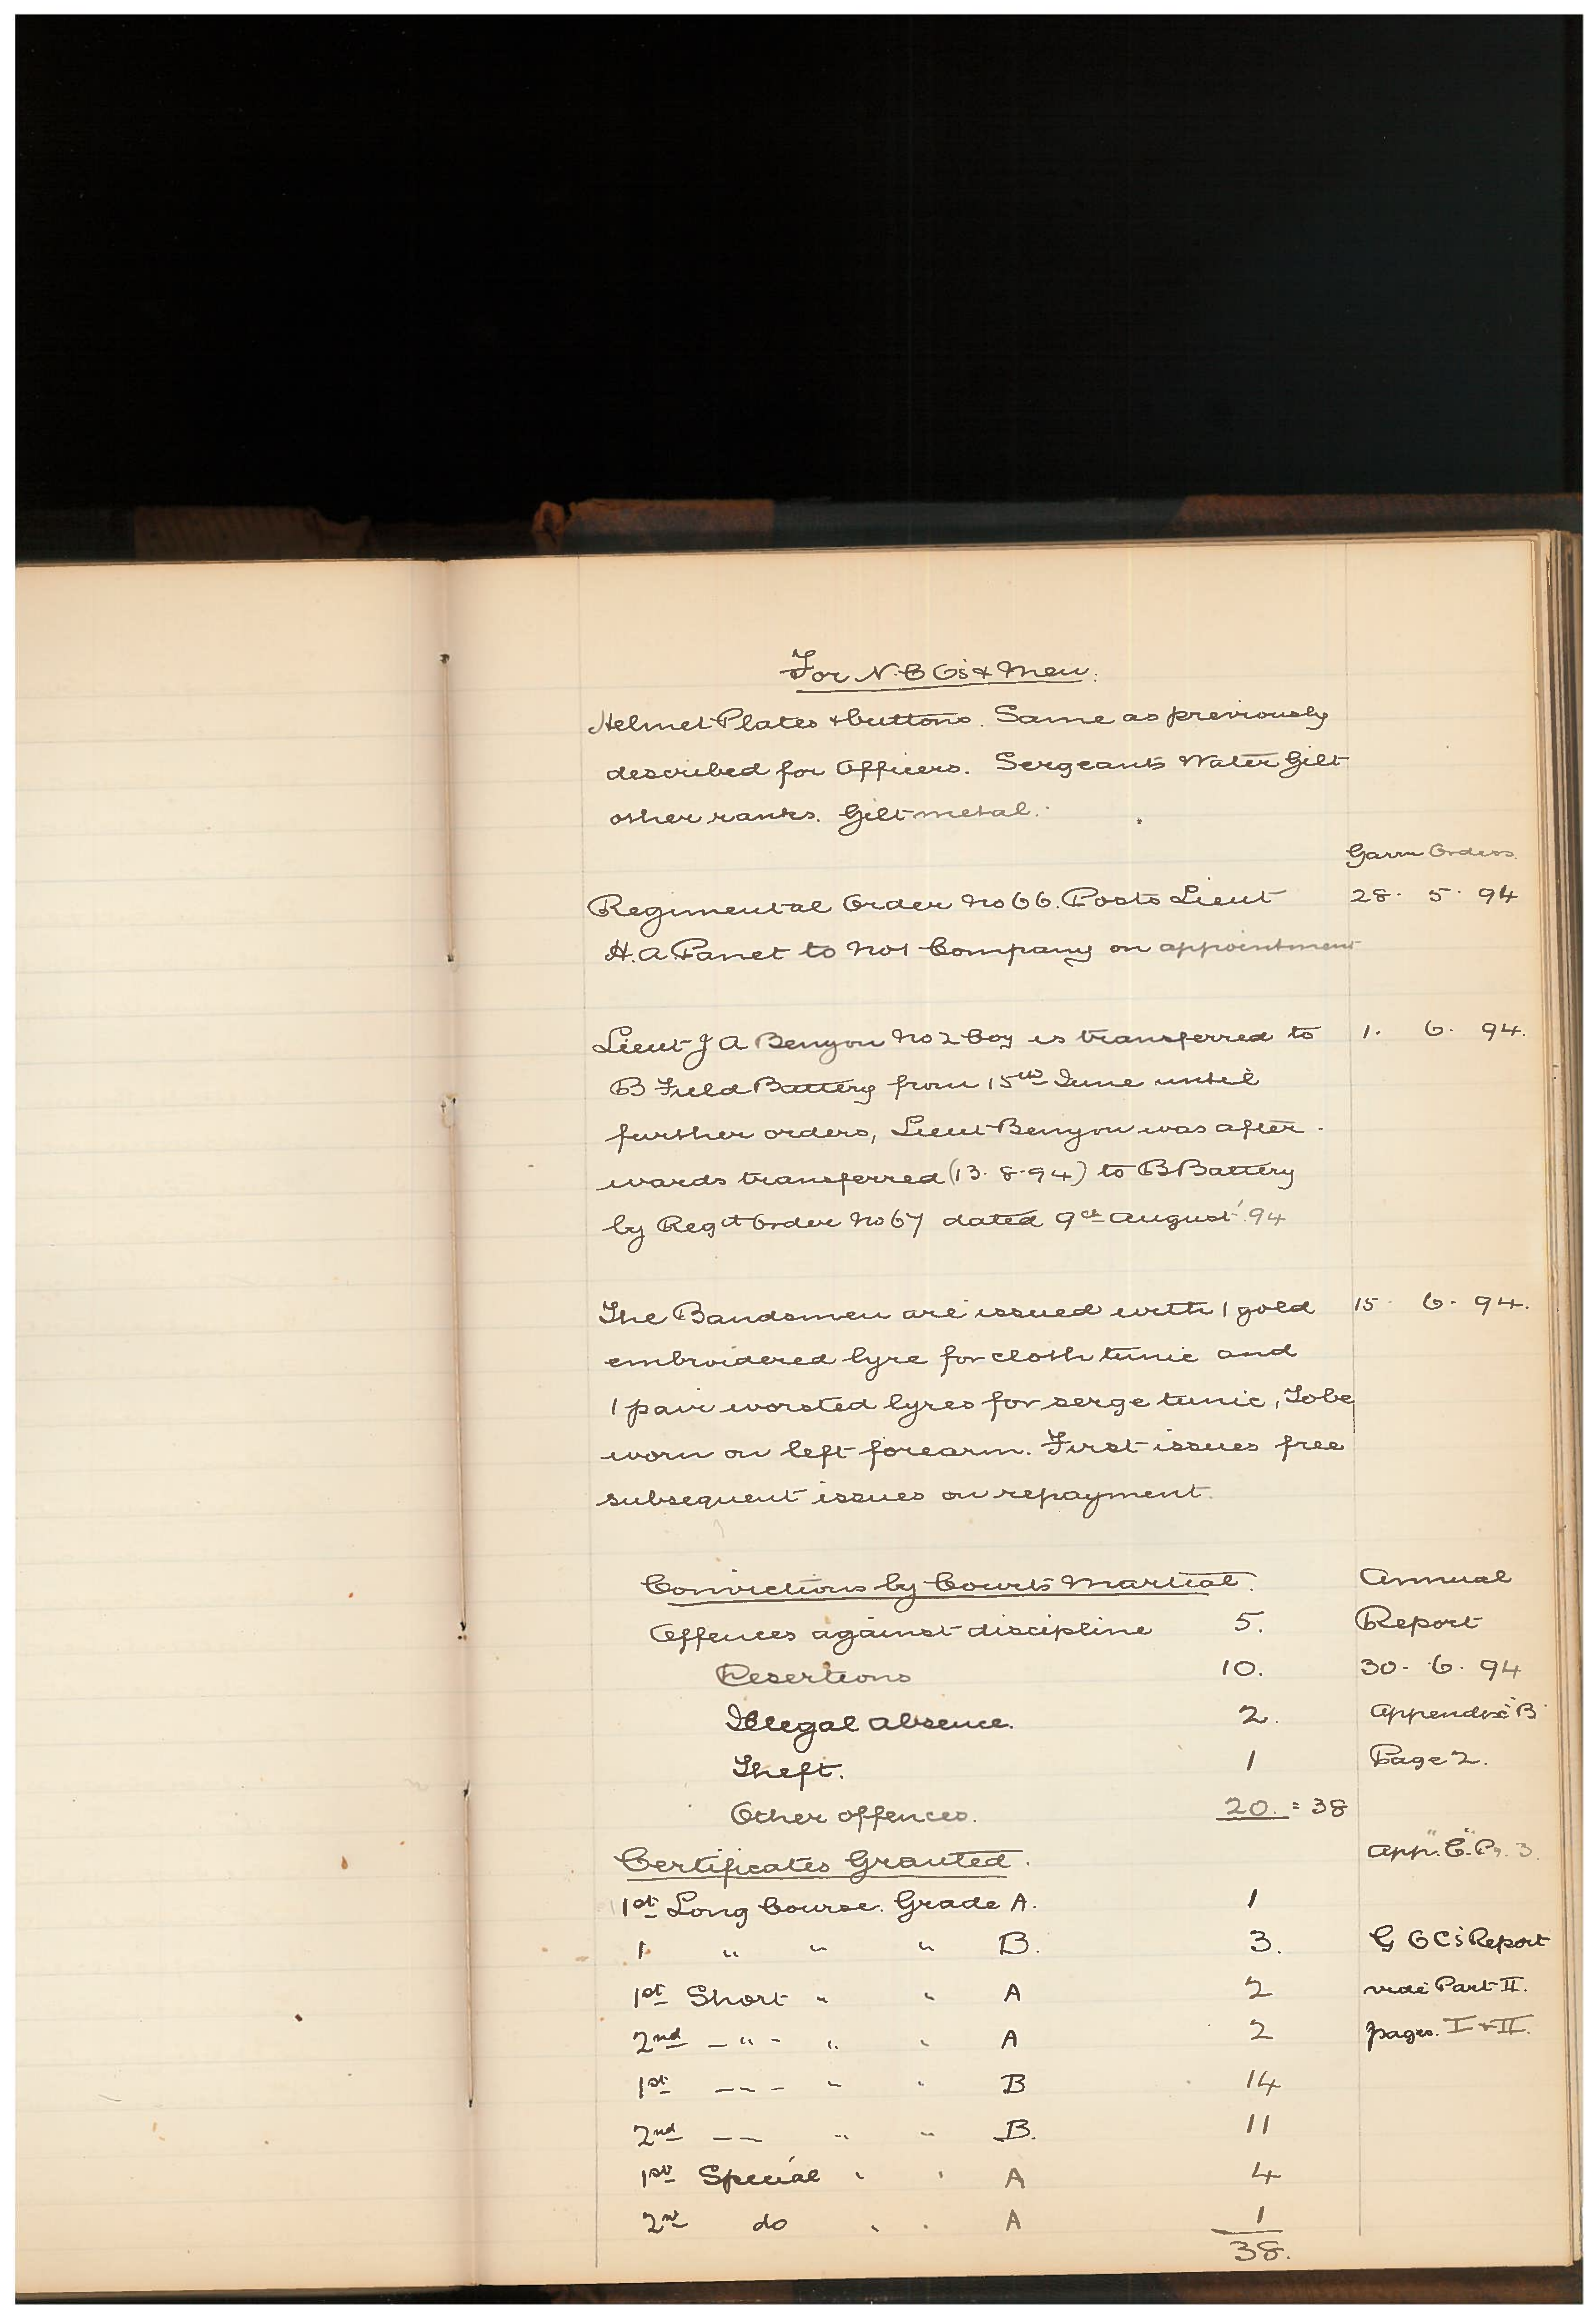 For N.C.O's & Men.
Helmet Plates & buttons. Same as previously
described for Officers. Sergeants Water Gilt
other ranks. Gilt metal.
Garrn Orders.
Regimental Order No 66. Posts Lieut 28. 5. 94
H.A. Panet to No 1 Company on appointment
Lieut J A Benyon No 2 Coy is transferred to 1. 6. 94.
B Field Battery from 15th June until
further orders, Lieut Benyon was after-
wards transferred (13. 8. 94) to B Battery
by Regt Order No 67 dated 9th August '94
The Bandsmen are issued with 1 gold 15. 6. 94.
embroidered lyre for cloth tunic and
1 pair worsted lyres for serge tunic, To be
worn on left forearm. First issues free
subsequent issues on repayment.
Convictions by Courts Martial. Annual
Offences against discipline 5. Report
Desertions 10. 30. 6. 94
Illegal absence. 2. Appendix "B"
Theft. 1 Page 2.
Other offences. 20. = 38
Certificates Granted. App. "C". Pg. 3.
1st Long Course. Grade A. 1
1. " " " B. 3. G O C's Report
1st Short " " A 2 vide Part II.
2nd — " — " " A 2 pages. I & II.
1st — " — " " B 14
2nd — — " " B. 11
1st Special " " A 4
2nd do " " A 1
38.